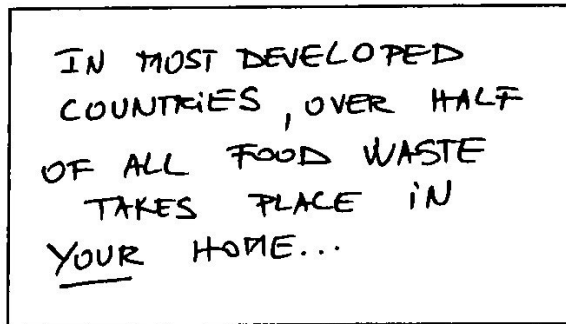 IN MOST DEVELOPED
COUNTRIES, OVER HALF
OF ALL FOOD WASTE
TAKES PLACE IN
YOUR HOME...